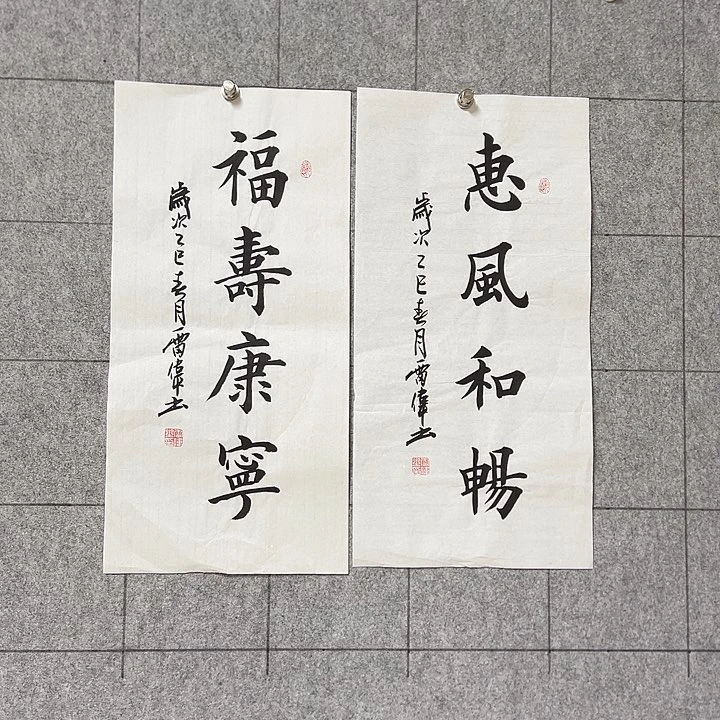 惠風和暢
歲次乙巳春月雷偉书
福壽康寧
歲次乙巳春月雷偉书